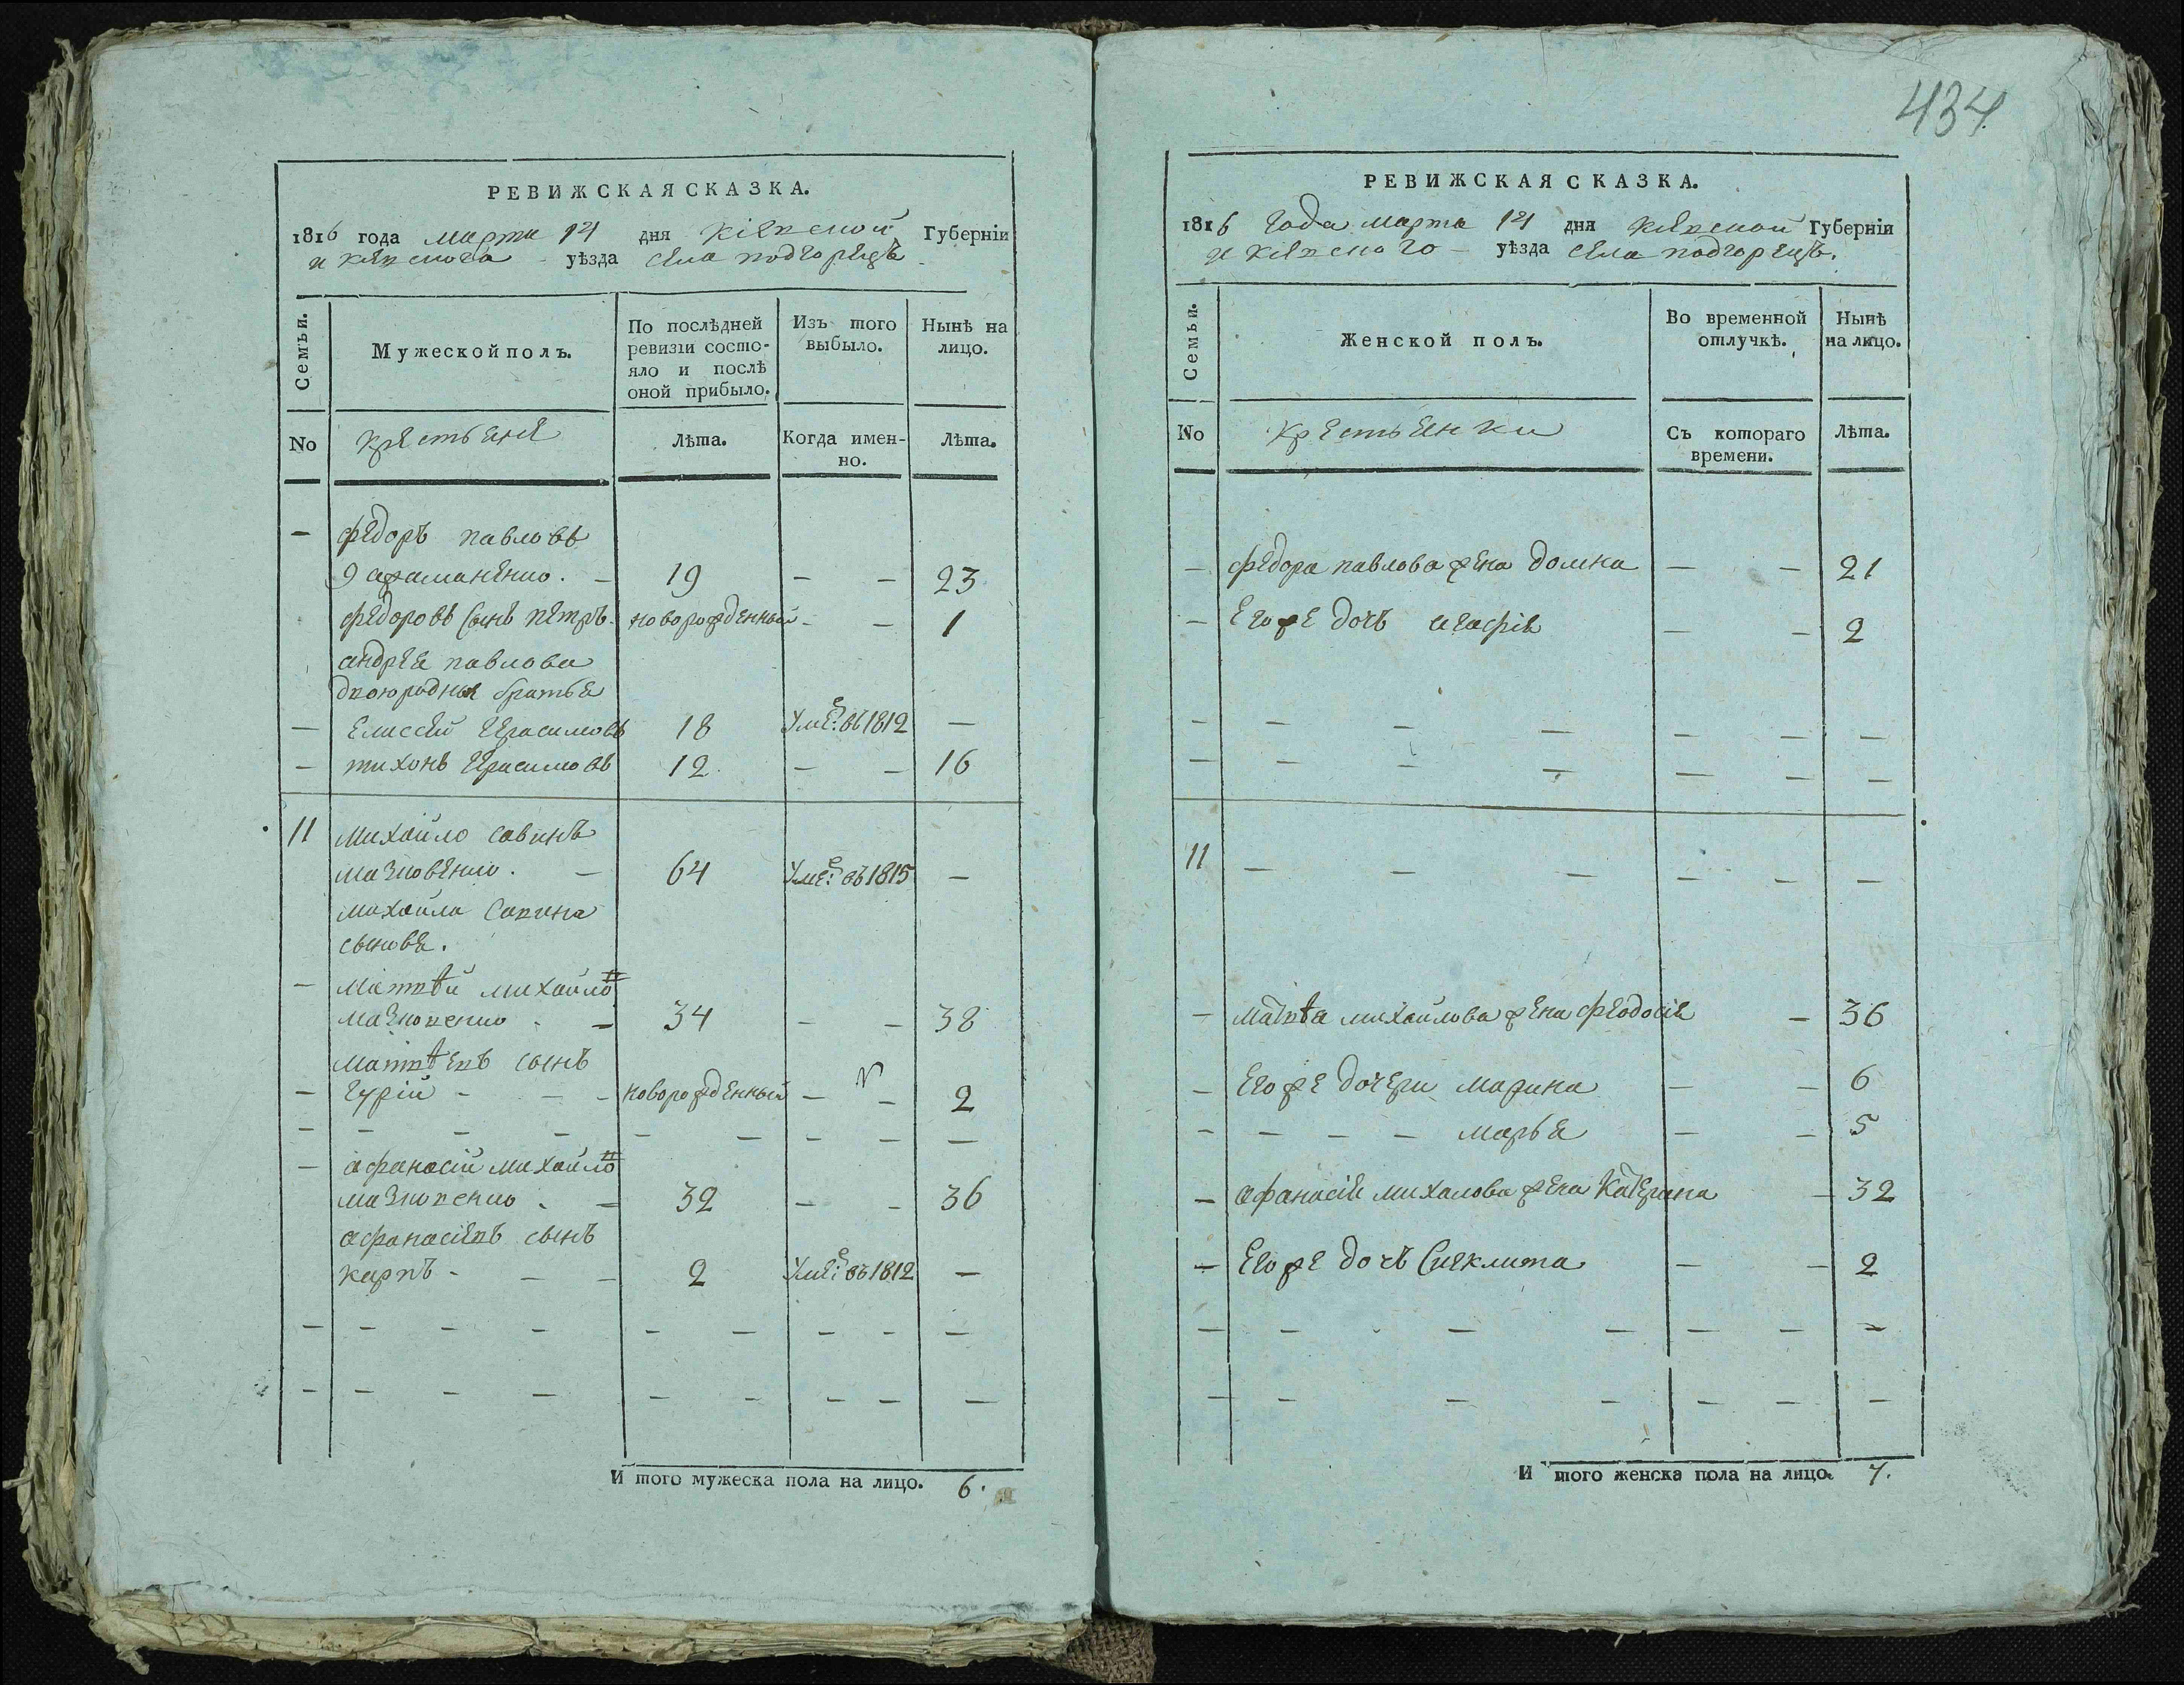 434.
РЕВИЖСКАЯ СКАЗКА.
1816 года марта 14 дня Кіевской Губерніи
и Кіевского уѣзда села подгорецъ
Семьи. Мужеской полъ. По послѣдней ревизіи состояло и послѣ оной прибыло. Изъ того выбыло. Нынѣ на лицо.
No крестьяне Лѣта. Когда именно. Лѣта.
— федоръ павловъ
19 — — 23
федоровъ сынъ петръ новорожденный — — 1
андрея павлова
двоюродныя братья
— Елисей Герасимовъ 18 Умеръ въ 1812 —
— тихонъ Герасимовъ 12 — — 16
11 михайло савинъ
мазновенко. — 64 Умеръ въ 1815 —
михайла савина
сыновья.
— матвѣй михайловъ
мазновенко — 34 — — 38
матвѣевъ сынъ
— Гурій — — новорожденный — — 2
— — — — — — — — —
— афанасій михайловъ
мазновенко — 32 — — 36
афанасіевъ сынъ
карпъ — — 2 Умеръ въ 1812 —
— — — — — — — — —
— — — — — — — — —
И того мужеска пола на лицо. 6.
РЕВИЖСКАЯ СКАЗКА.
1816 года марта 14 дня Кіевской Губерніи
и Кіевского — уѣзда села подгорецъ.
Семьи. Женской полъ. Во временной отлучкѣ. Нынѣ на лицо.
No крестьянки Съ котораго времени. Лѣта.
— федора павлова жена домна — — 21
— Егоже дочь агафія — — 2
— — — — — — —
— — — — — — —
11 — — — — — —
— матвѣя михайлова жена феодосія — 36
— Егоже дочери марина — — 6
— — — — марья — — 5
— афанасія михалова жена Катерина — 32
— Егоже дочь Сиклита — — 2
— — — — — — —
— — — — — — —
И того женска пола на лицо. 7.